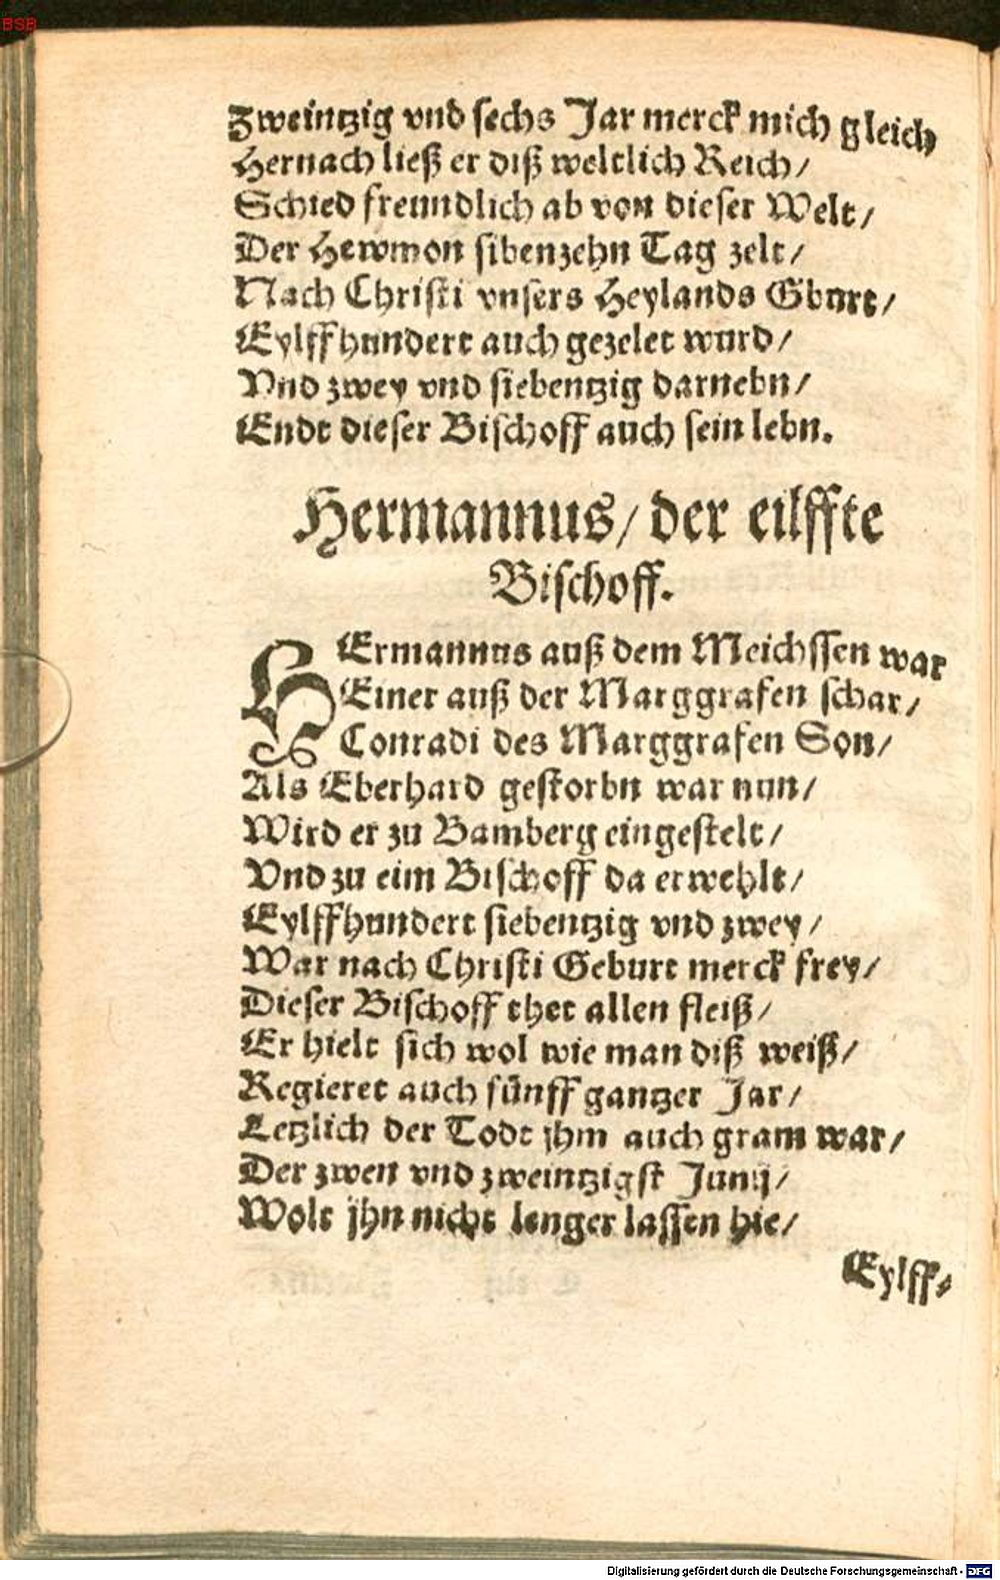 BSB
Zweintzig vnd sechs Jar merck mich gleich
Hernach ließ er diß weltlich Reich/
Schied freundlich ab von dieser Welt/
Der Hewmon sibenzehn Tag zelt/
Nach Christi vnsers Heylands Gburt/
Eylffhundert auch gezelet wurd/
Vnd zwey vnd siebentzig darnebn/
Endt dieser Bischoff auch sein lebn.
Hermannus/ der eilffte
Bischoff.
HErmannus auß dem Meichssen war
Einer auß der Marggrafen schar/
Conradi des Marggrafen Son/
Als Eberhard gestorbn war nun/
Wird er zu Bamberg eingestelt/
Vnd zu eim Bischoff da erwehlt/
Eylffhundert siebentzig vnd zwey/
War nach Christi Geburt merck frey/
Dieser Bischoff thet allen fleiß/
Er hielt sich wol wie man diß weiß/
Regieret auch fünff gantzer Jar/
Letzlich der Todt jhm auch gram war/
Der zwen vnd zweintzigst Junij/
Wolt jhn nicht lenger lassen hie/
Eylff-
Digitalisierung gefördert durch die Deutsche Forschungsgemeinschaft - DFG